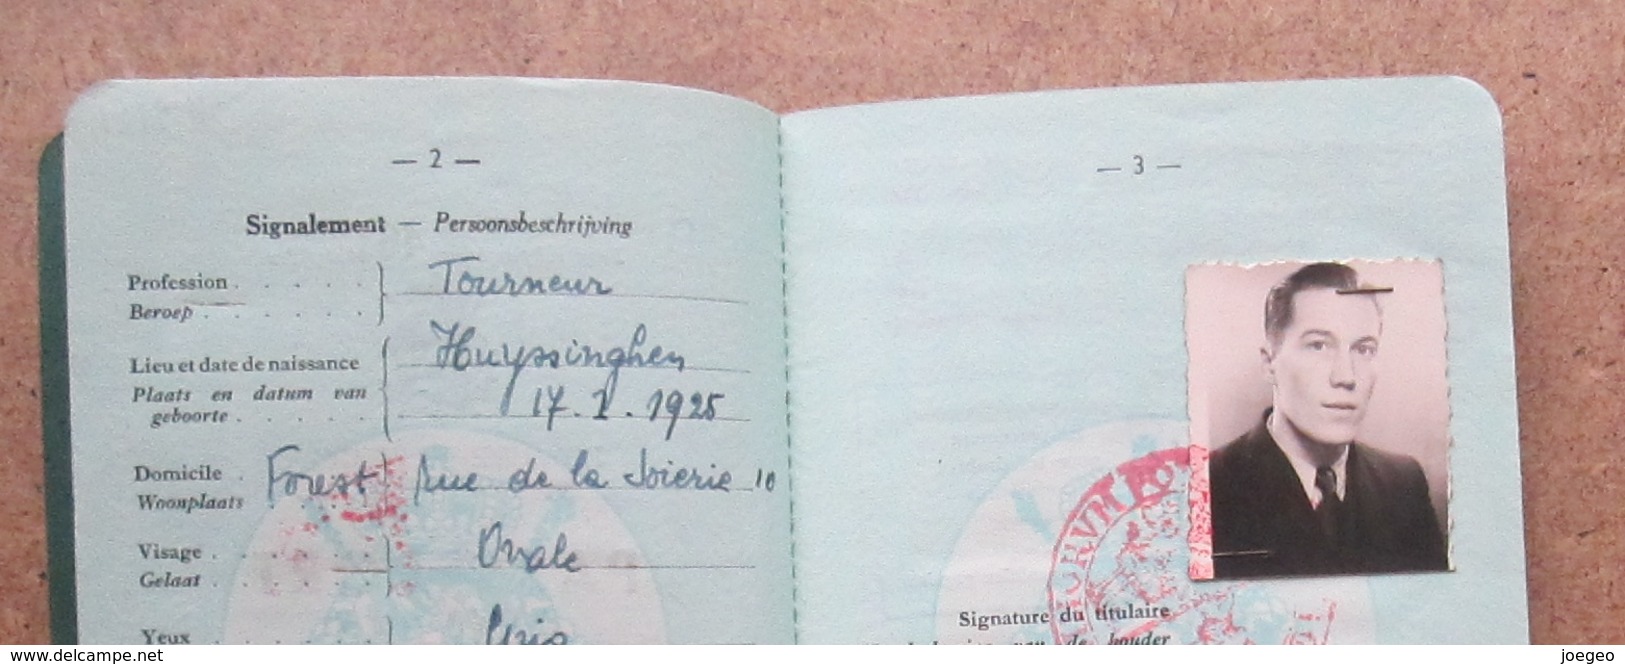 — 2 —
Signalement — Persoonsbeschrijving
Profession . . . . . Tourneur
Beroep . . . . . .
Lieu et date de naissance Huyssinghen
Plaats en datum van
geboorte . . . . . 17.1.1925
Domicile . Forest Rue de la Soierie 10
Woonplaats
Visage . . . . . Ovale
Gelaat . . . . .
Yeux . . . . . Gris
— 3 —
Signature du titulaire
de houder
www.delcampe.net
joegeo